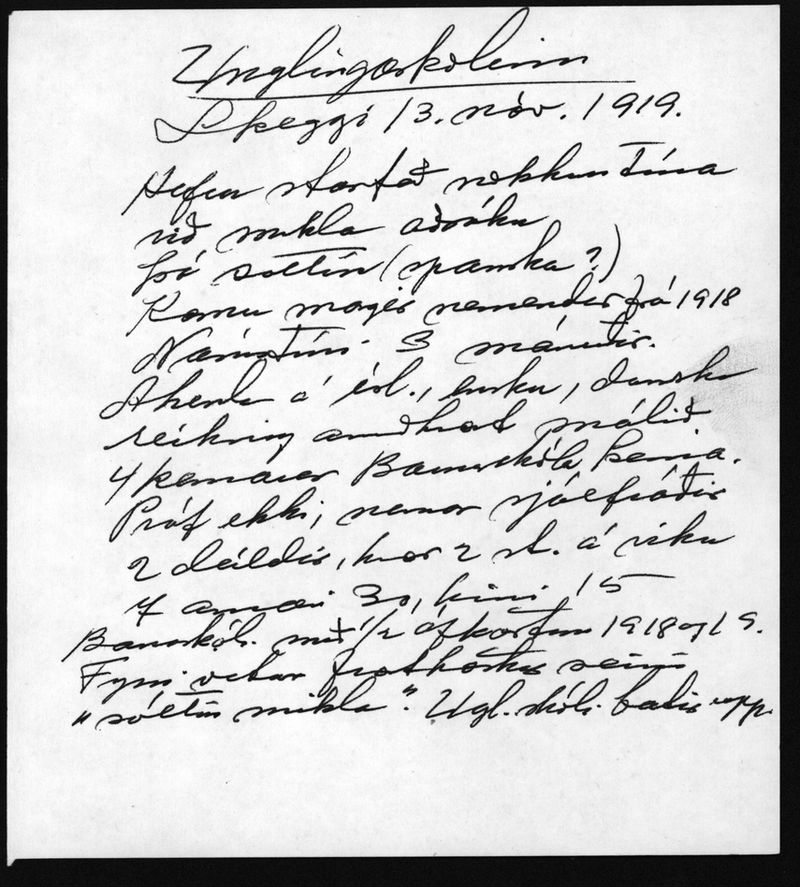 Unglingaskólinn
Skeggi 13. nóv. 1919.
Hefur startað nokkurn tíma
við mikla aðsókn
þó sóttin (spanska?)
Komu margir nemendur frá 1918
Námstími 3 mánuðir.
Áhersla á ísl., ensku, dansku
reikning annðhvort málið.
4 kennarar Barnaskóla kenna.
Próf ekki, nema sjálfráðir
2 deildir, hvor 2 st. á viku
4 annari 30, hinni 15
Barnskól. með 1/2 afköstum 1918 og 19.
Fyrri vetur frosthörkur seinni
"sóttin mikla". Ugl.skól. bætir upp.